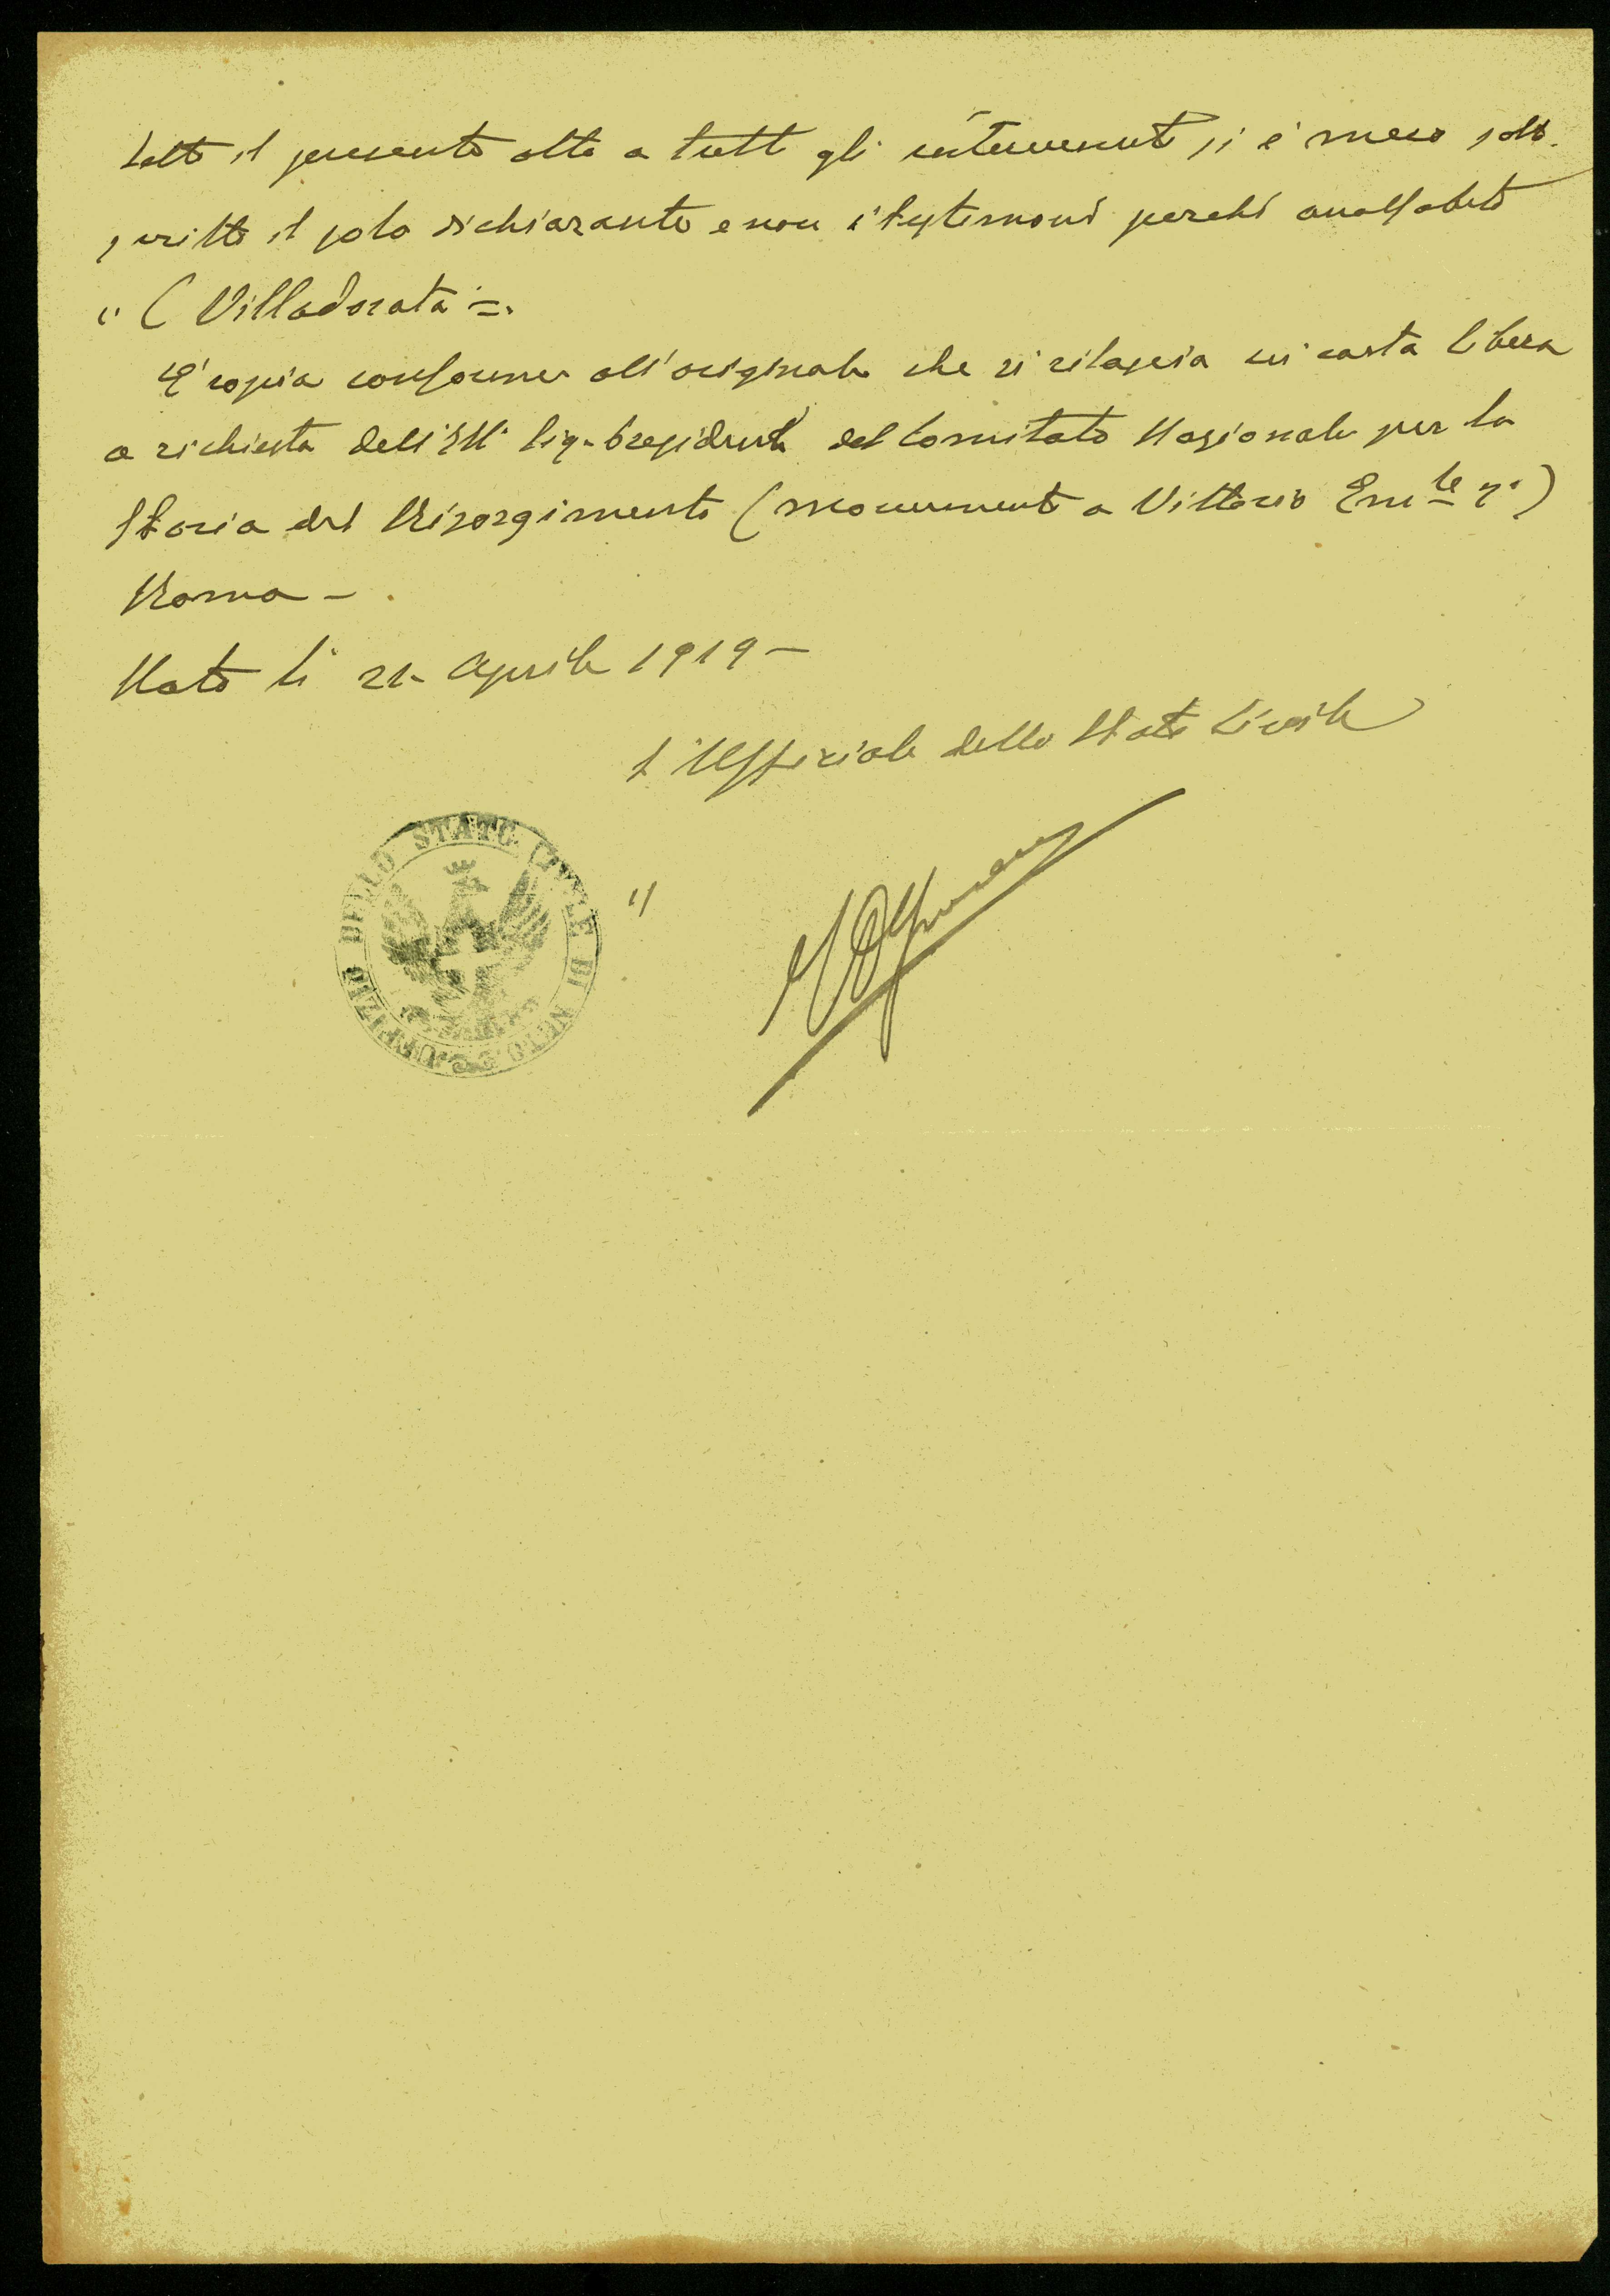 Letto il presente atto a tutti gli intervenuti si è meco sotto-
scritto il solo dichiarante e non i testimoni perché analfabeti
" ( Villadorata =.
E' copia conforme all'originale che si rilascia in carta libera
a richiesta dell'Ill. Sig. Presidente del Comitato Nazionale per la
Storia del Risorgimento (monumento a Vittorio Em.le 2°)
Roma -
Noto li 21 Aprile 1919 -
L'Uffiziale dello Stato Civile
UFFIZIO DELLO STATO CIVILE DI NOTO